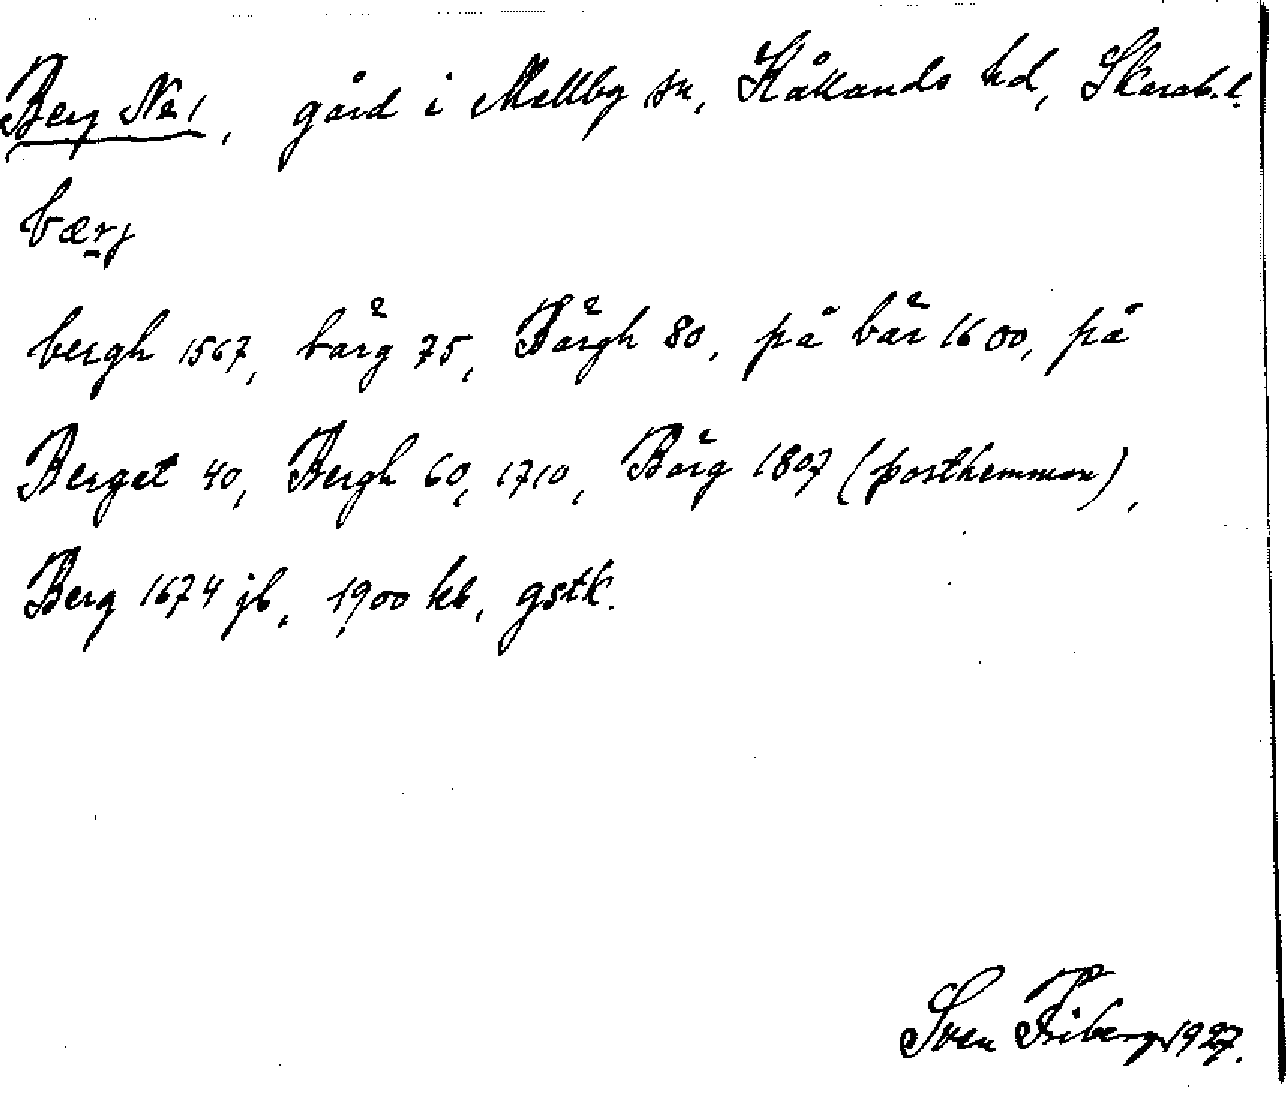 Berg No 1, gård i Mellby sn, Kåkands hd, Skarab. l.
bærj
bergh 1567, bårg 75, Bårgh 80, på bår 1600, på
Berget 40, Bergh 60, 1710, Bårg 1807 (posthemman),
Berg 1674 jb, 1900 kb, gstk.
Sven Friberg 1927.